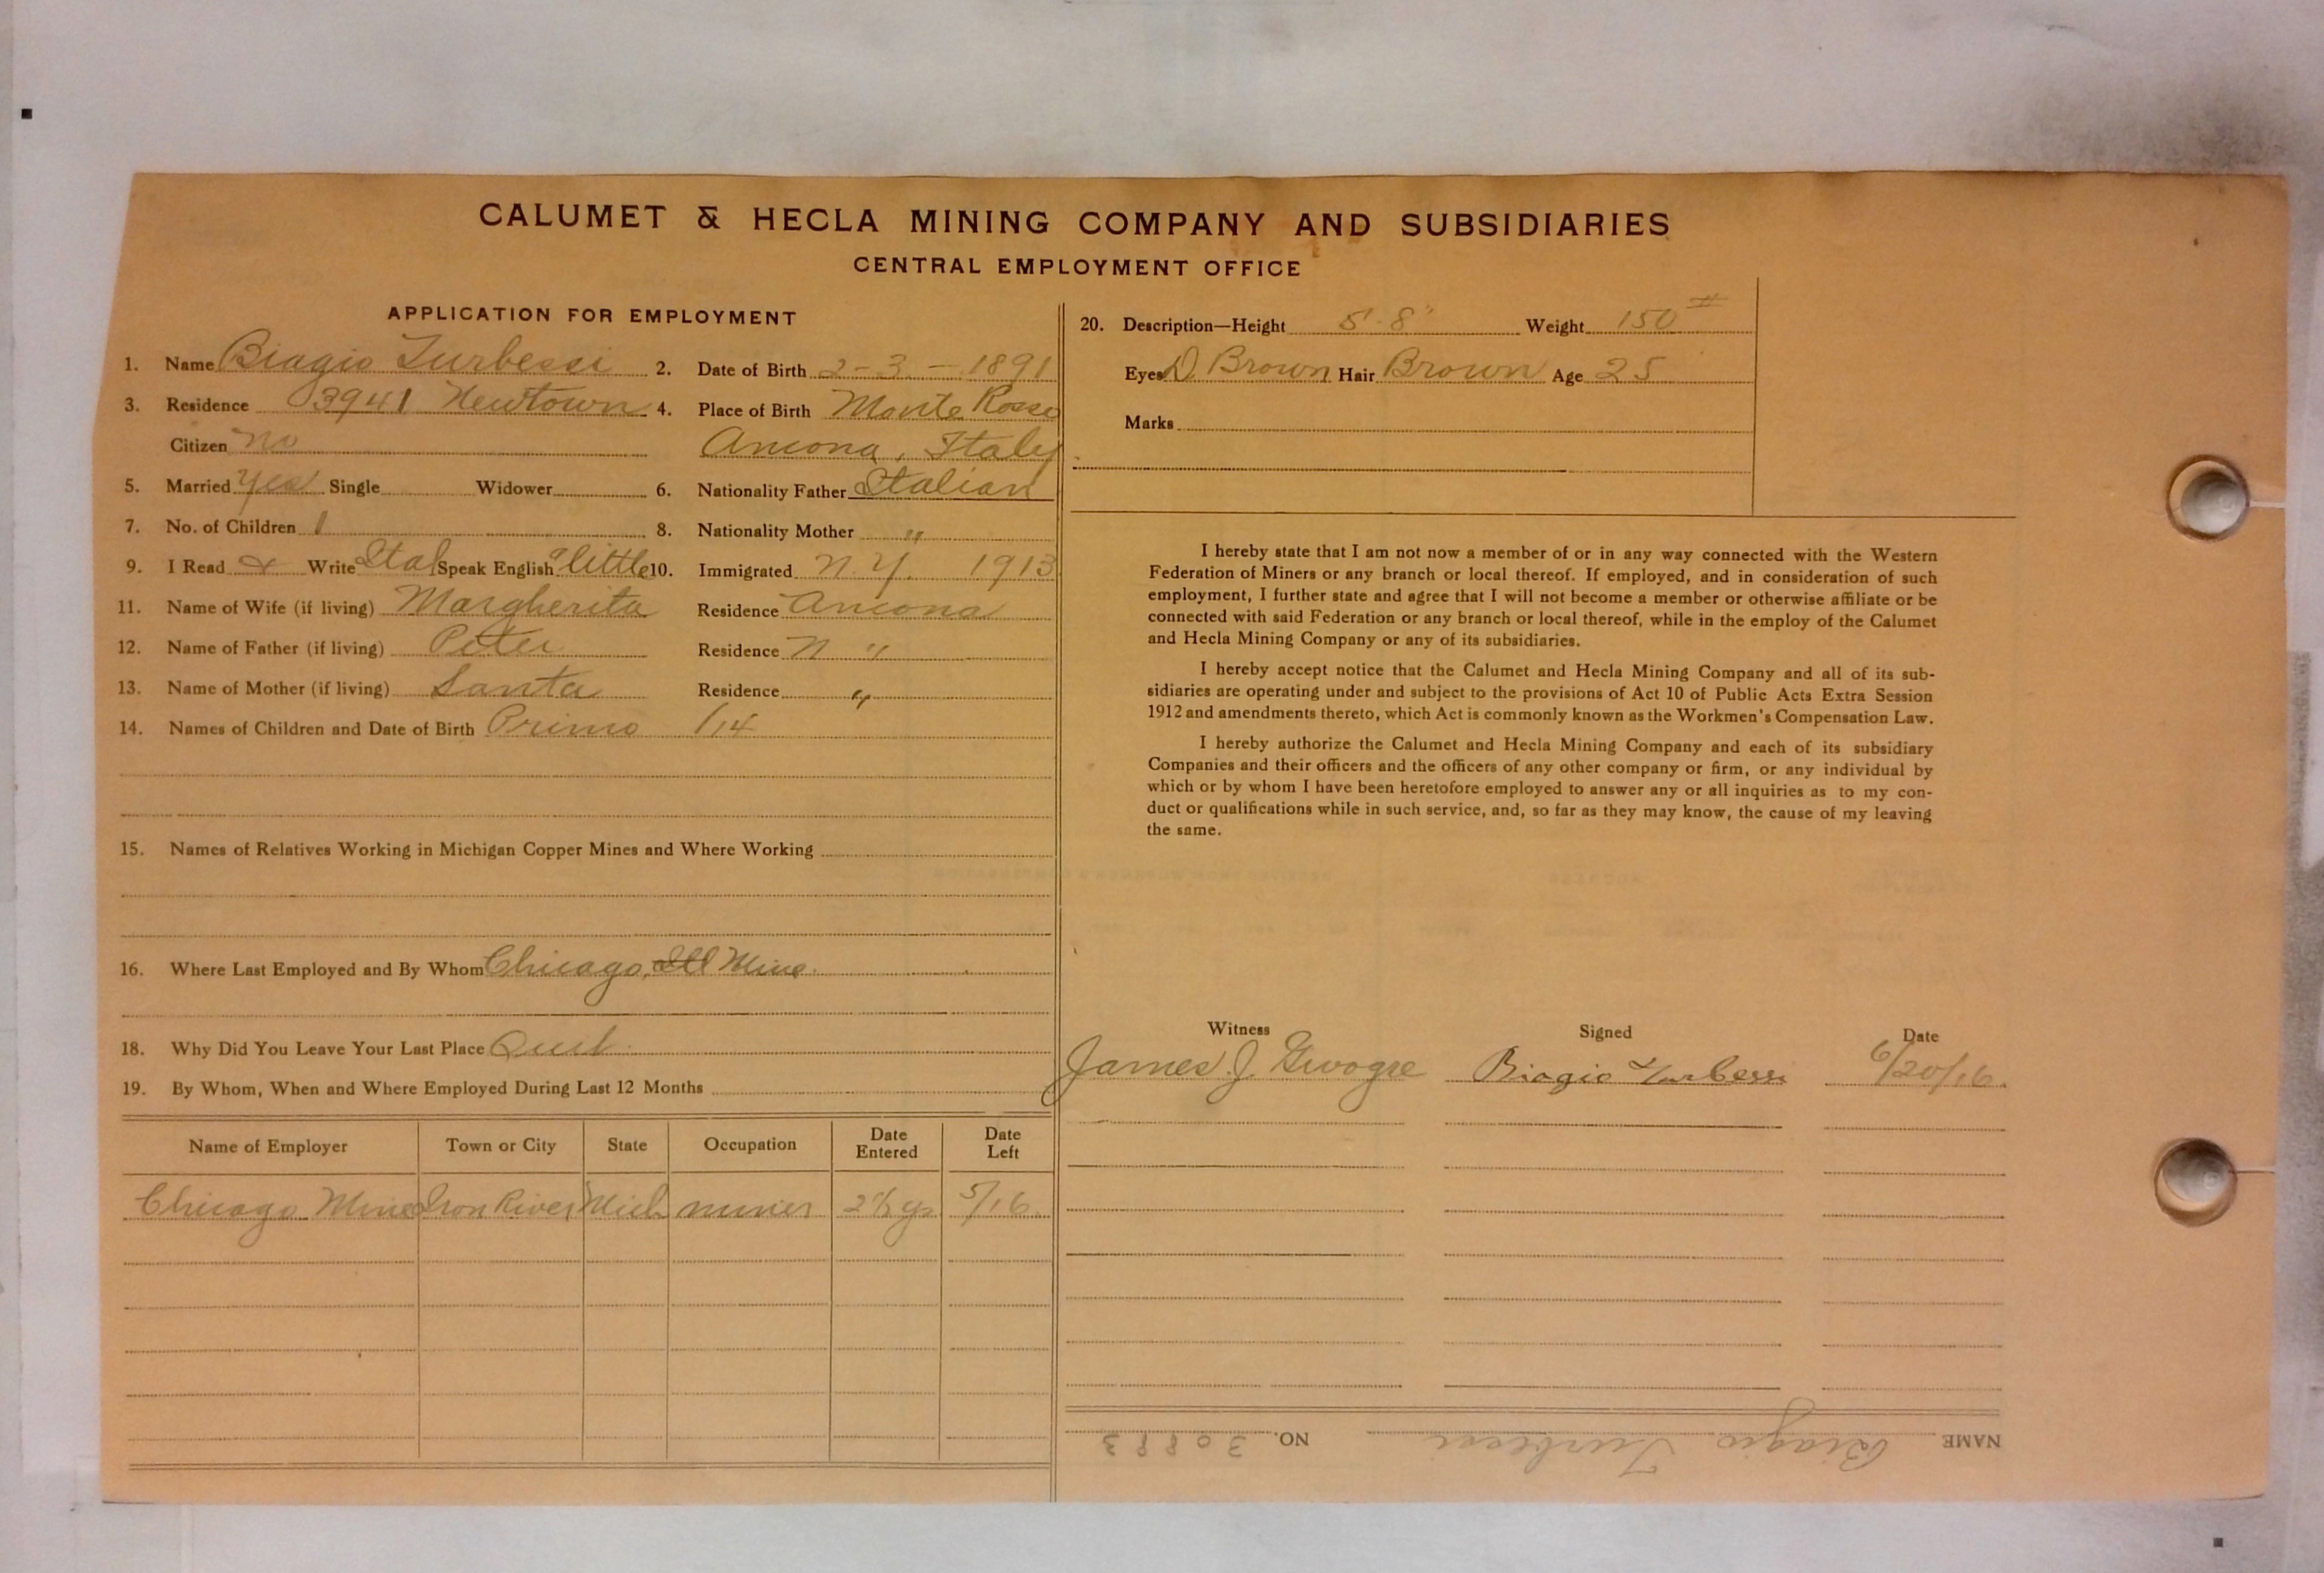 CALUMET & HECLA MINING COMPANY AND SUBSIDIARIES
CENTRAL EMPLOYMENT OFFICE
APPLICATION FOR EMPLOYMENT
1. Name Biagio Turbessi 2. Date of Birth 2-3-1891
3. Residence 3941 Newtown 4. Place of Birth Monte Rosso
Citizen no Ancona, Italy
5. Married Yes Single Widower 6. Nationality Father Italian
7. No. of Children 1 8. Nationality Mother "
9. I Read & Write Ital Speak English a little 10. Immigrated N.Y. 1913
11. Name of Wife (if living) Margherita Residence Ancona
12. Name of Father (if living) Peter Residence "
13. Name of Mother (if living) Santa Residence "
14. Names of Children and Date of Birth Primo 1/14
15. Names of Relatives Working in Michigan Copper Mines and Where Working
16. Where Last Employed and By Whom Chicago, Ill Mine
18. Why Did You Leave Your Last Place Quit
19. By Whom, When and Where Employed During Last 12 Months
Name of Employer Town or City State Occupation Date Entered Date Left
Chicago Mine Iron River Mich miner 2½ yr 5/16
20. Description—Height 5' 8" Weight 150 #
Eyes D Brown Hair Brown Age 25
Marks
I hereby state that I am not now a member of or in any way connected with the Western
Federation of Miners or any branch or local thereof. If employed, and in consideration of such
employment, I further state and agree that I will not become a member or otherwise affiliate or be
connected with said Federation or any branch or local thereof, while in the employ of the Calumet
and Hecla Mining Company or any of its subsidiaries.
I hereby accept notice that the Calumet and Hecla Mining Company and all of its sub-
sidiaries are operating under and subject to the provisions of Act 10 of Public Acts Extra Session
1912 and amendments thereto, which Act is commonly known as the Workmen's Compensation Law.
I hereby authorize the Calumet and Hecla Mining Company and each of its subsidiary
Companies and their officers and the officers of any other company or firm, or any individual by
which or by whom I have been heretofore employed to answer any or all inquiries as to my con-
duct or qualifications while in such service, and, so far as they may know, the cause of my leaving
the same.
Witness Signed Date
James J. Biagio Turbessi 6/20/16.
NAME Biagio Turbessi NO. 30883